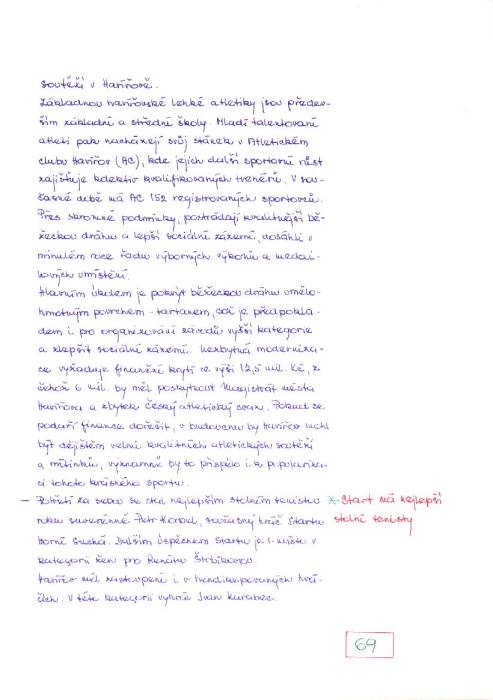 soutěží v Havířově.
Základnou havířovské lehké atletiky jsou předev-
ším základní a střední školy. Mladí talentovaní
atleti pak nacházejí svůj stánek v Atletickém
clubu Havířov (AC), kde jejich další sportovní růst
zajišťuje kolektiv kvalifikovaných trenérů. V sou-
časné době má AC 152 registrovaných sportovců.
Přes skromné podmínky, postrádají kvalitnější bě-
žeckou dráhu a lepší sociální zázemí, dosáhli v
minulém roce řadu výborných výkonů a medai-
lových umístění.
Hlavním úkolem je pokrýt běžeckou dráhu umělo-
hmotným povrchem - tartanem, což je předpokla-
dem i pro organizování závodů vyšší kategorie
a zlepšit sociální zázemí. Nezbytná moderniza-
ce vyžaduje finanční krytí ve výši 12,5 mil. Kč, z
čehož 6 mil. by měl poskytnout Magistrát města
Havířova a zbytek Český atletický svaz. Pokud se
podaří finance dořešit, v budoucnu by Havířov mohl
být dějištěm velmi kvalitních atletických soutěží
a mítinků, významně by to přispělo i k populariza-
ci tohoto krásného sportu.
- Potřetí za sebou se stal nejlepším stolním tenistou
roku suverénně Petr Korbel, současný hráč Startu
Horní Suchá. Dalším úspěchem Startu je 1. místo v
kategorii žen pro Renátu Štrbíkovou.
Havířov měl zastoupení i v handicapovaných hrá-
čích. V této kategorii vyhrál Ivan Karabec.
* Start má nejlepší
stolní tenisty
69